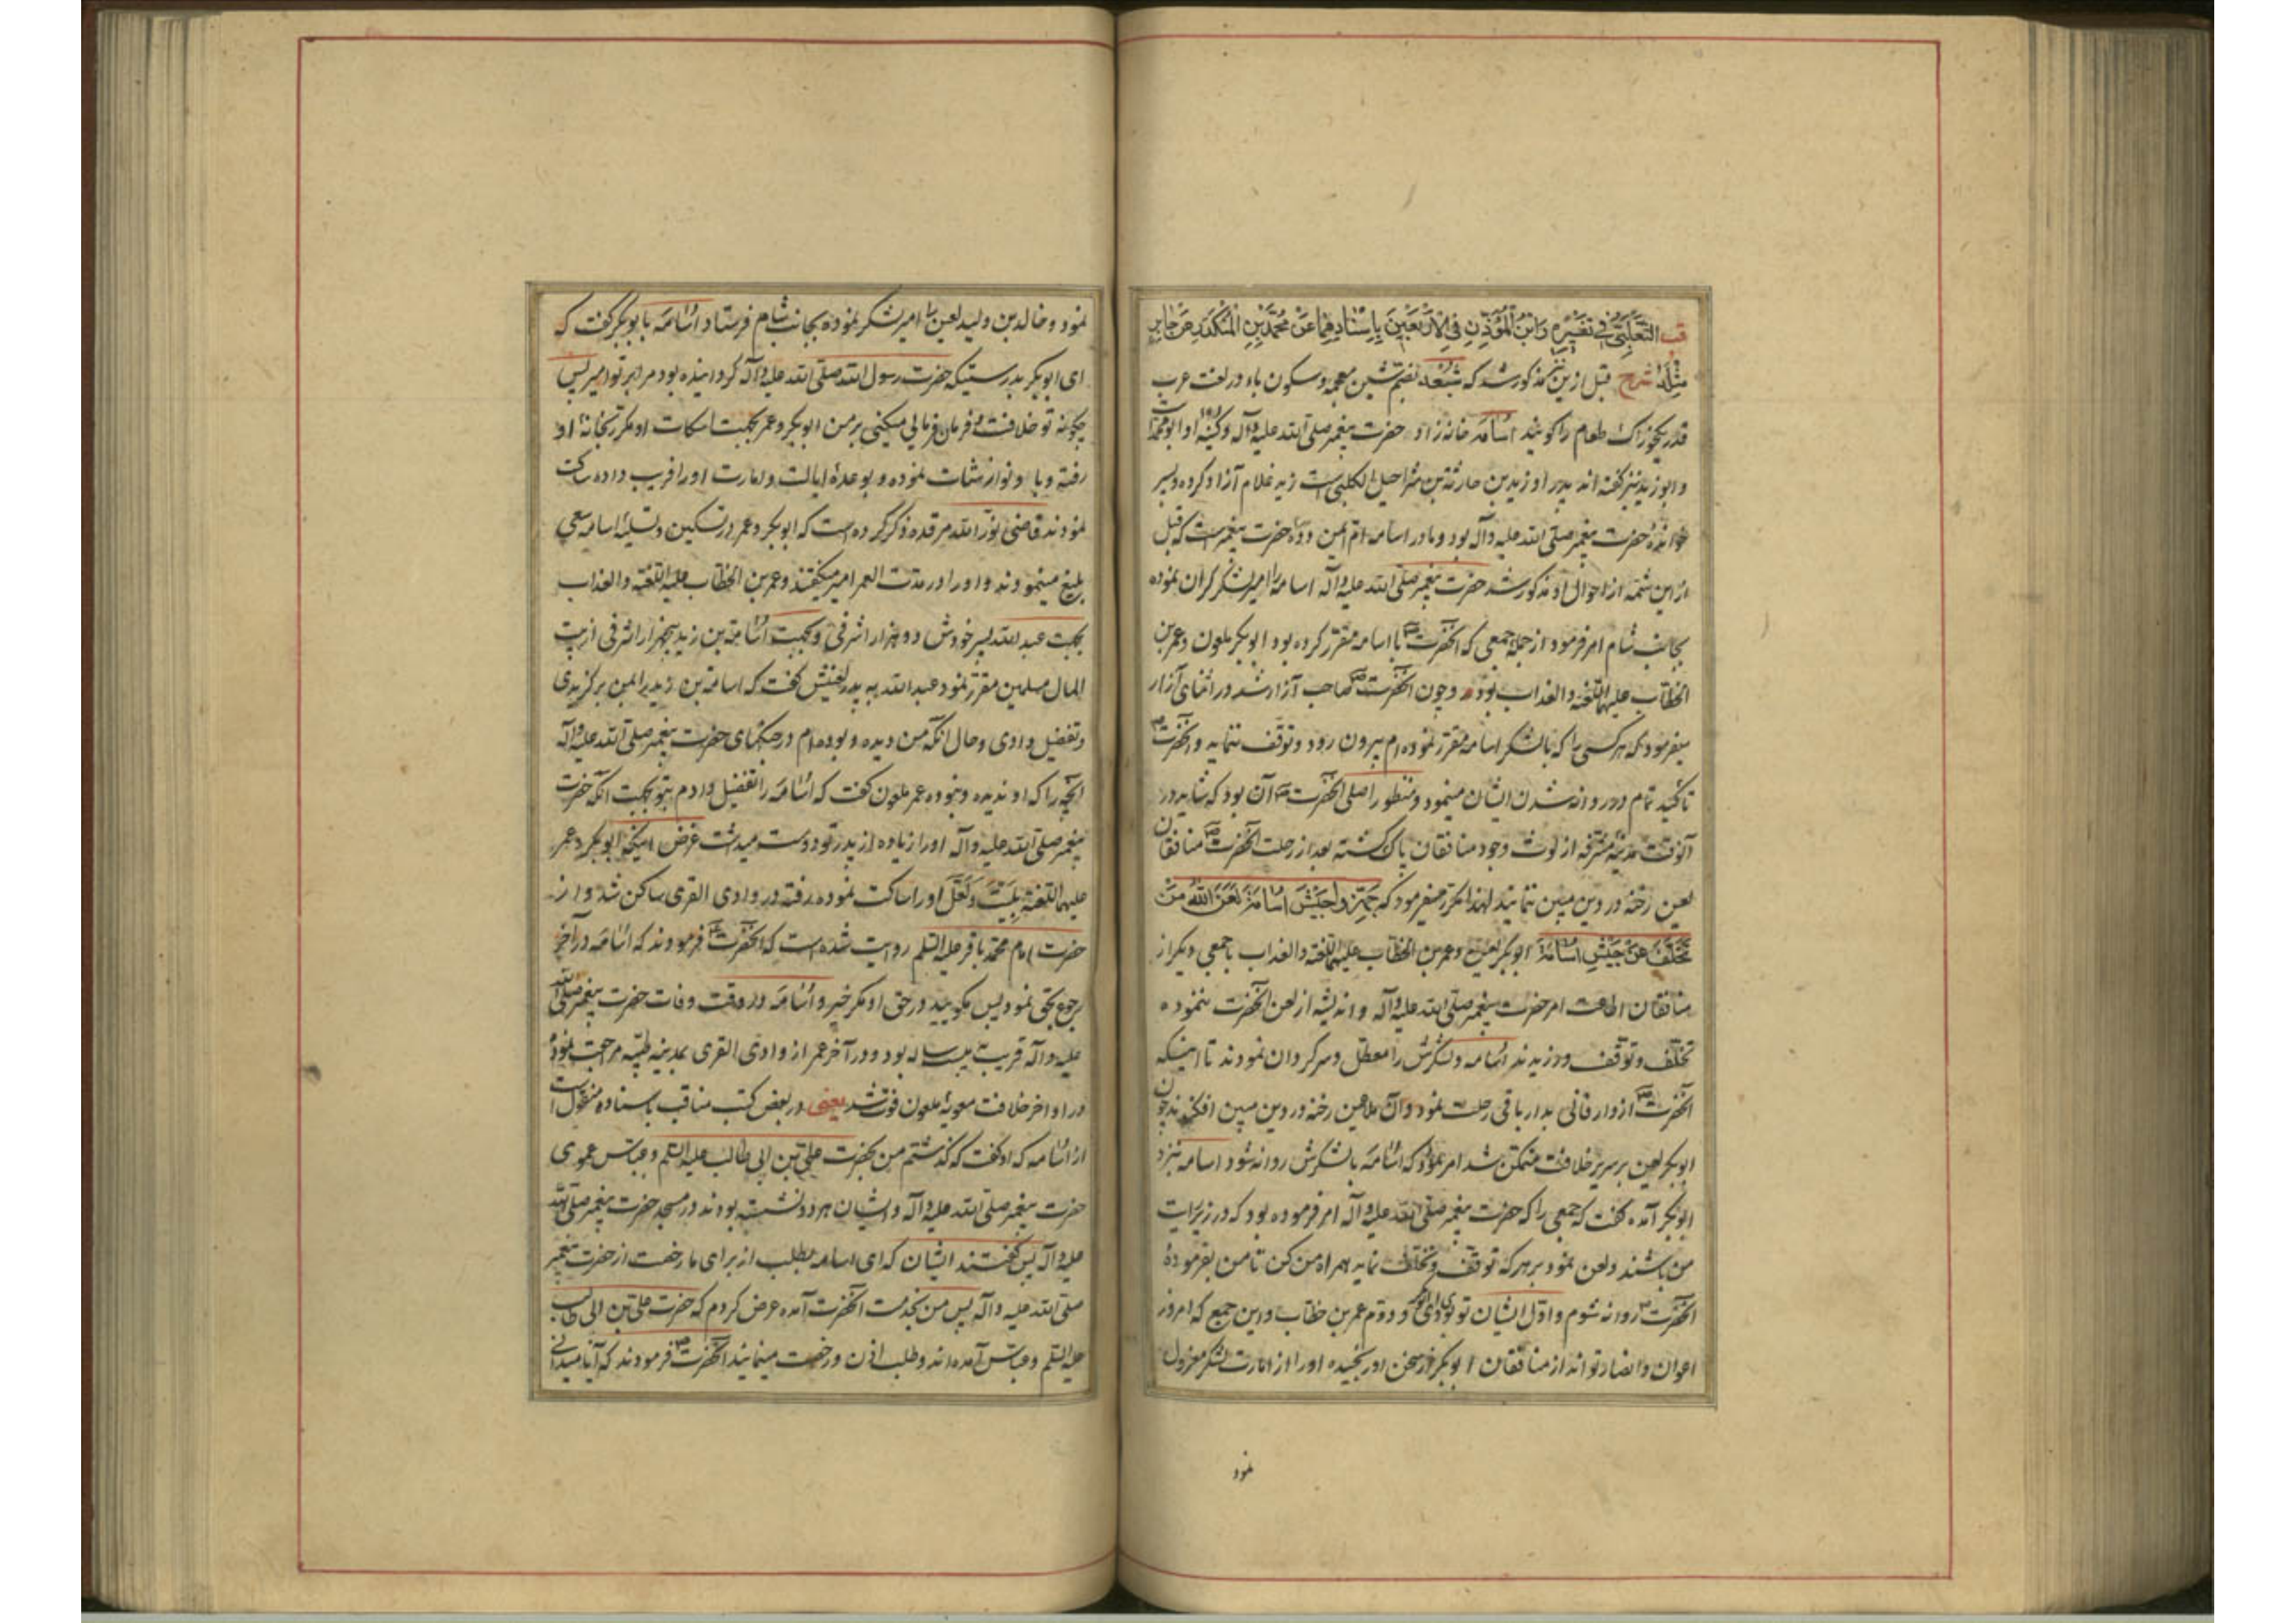 قب الثعلبي في تفسيره وابن المؤذن في الاربعين باسنادهما عن محمد بن المنكدر عن جابر
مثله شرح قبل ازین مذکور شد که شبعه بضم شین معجمه وسکون باء در لغت عرب
قدر یکخوراک طعام را گویند اسامه خانه زاد حضرت پیغمبر صلی الله علیه وآله وکنیه او ابو محمد است
وابو زید نیز گفته اند پدر او زید بن حارثة بن شراحیل الکلبی است زید غلام آزاد کرده وپسر
خواندهٔ حضرت پیغمبر صلی الله علیه وآله بود ومادر اسامه ام ایمن حضرت پیغمبر است که قبل
ازین شمه از احوال او مذکور شد حضرت پیغمبر صلی الله علیه وآله اسامه را امیر لشکر گران نموده
بجانب شام امر فرمود از جمله جمعی که آنحضرت ص با اسامه مقرر کرده بود ابوبکر ملعون وعمر بن
الخطاب علیهما اللعنه والعذاب بودند وچون آنحضرت ص صاحب آزار شد در اثنای آزار
میفرمود که هر کسی را که با لشکر اسامه مقرر نموده ام بیرون رود وتوقف ننماید وآنحضرت ص
تاکید تمام در روانه شدن ایشان مینمود ومنظور اصلی آنحضرت ص آن بود که شاید در
آنوقت مدینه مشرفه از لوث وجود منافقان پاک گشته بعد از رحلت آنحضرت ص منافقان
لعین رخنه در دین مبین ننمایند لهذا مکرر میفرمود که جهزوا جیش اسامة لعن الله من
تخلف عن جیش اسامة ابوبکر لعین وعمر بن الخطاب علیهما اللعنه والعذاب با جمعی دیگر از
منافقان اطاعت امر حضرت پیغمبر صلی الله علیه وآله واندیشه از لعن آنحضرت ننموده
تخلف وتوقف ورزیدند اسامه ولشکرش را معطل وسرگردان نمودند تا اینکه
آنحضرت ص از دار فانی بدار باقی رحلت نمود وآن ملاعین رخنه در دین مبین افکندند چون
ابوبکر لعین بر سریر خلافت متمکن شد امر نمود که اسامه با لشکرش روانه شود اسامه بنزد
ابوبکر آمده گفت که جمعی را که حضرت پیغمبر صلی الله علیه وآله امر فرموده بود که در زیر رایت
من باشند ولعن نمود بر هر که توقف وتخلف نماید همراه من کن تا من بفرمودهٔ
آنحضرت ص روانه شوم واول ایشان تو بودی ای ابوبکر ودوم عمر بن خطاب واین جمع که امروز
اعوان وانصار تو اند از منافقان ابوبکر از سخن او رنجیده او را از امارت لشکر معزول
نمود
نمود وخالد بن ولید لعین را امیر لشکر نموده بجانب شام فرستاد اسامه بابوبکر گفت که
ای ابوبکر بدرستیکه حضرت رسول الله صلی الله علیه وآله گردانیده بود مرا بر تو امیر پس
چگونه تو خلافت وفرمان فرمائی میکنی بر من ابوبکر وعمر بجهت اسکات او مکرر بخانهٔ او
رفته وبا او نوازشات نموده وبوعدهٔ ایالت وامارت او را فریب داده ساکت
نمودند قاضی نور الله مرقده ذکر کرده است که ابوبکر وعمر در تسکین وتسلیهٔ اسامه سعی
بلیغ مینمودند واو را در مدت العمر امیر میگفتند وعمر بن الخطاب علیه اللعنه والعذاب
بجهت عبد الله پسر خودش دو هزار اشرفی وبجهت اسامة بن زید پنجهزار اشرفی از بیت
المال مسلمین مقرر نمود عبد الله به پدر لعینش گفت که اسامة بن زید را بمن برگزیدی
وتفضیل دادی وحال آنکه من دیده وبوده ام در جنگهای حضرت پیغمبر صلی الله علیه وآله
آنچه را که او ندیده ونبوده عمر ملعون گفت که اسامه را تفضیل دادم بتو بجهت آنکه حضرت
پیغمبر صلی الله علیه وآله او را زیاده از پدر تو دوست میداشت غرض اینکه ابوبکر وعمر
علیهما اللعنة بلیت ولعل او را ساکت نموده رفته در وادی القری ساکن شد واز
حضرت امام محمد باقر علیه السلم روایت شده است که آنحضرت ع فرمودند که اسامه در آخر
رجوع بحق نمود پس مگویید در حق او مگر خیر واسامه در وقت وفات حضرت پیغمبر صلی الله
علیه وآله قریب بیست ساله بود ودر آخر عمر از وادی القری بمدینه طیبه مراجعت نموده
در اواخر خلافت معویهٔ ملعون فوت شد یعنی در بعض کتب مناقب باسناده منقول است
از اسامه که او گفت که گذشتم من بحضرت علی بن ابی طالب علیه السلم وعباس عموی
حضرت پیغمبر صلی الله علیه وآله وایشان هر دو نشسته بودند در مسجد حضرت پیغمبر صلی الله
علیه وآله پس گفتند ایشان که ای اسامه بطلب از برای ما رخصت از حضرت پیغمبر
صلی الله علیه وآله پس من بخدمت آنحضرت آمده عرض کردم که حضرت علی بن ابی طالب
علیه السلم وعباس آمده اند وطلب اذن ورخصت مینمایند آنحضرت ص فرمودند که آیا میدانی